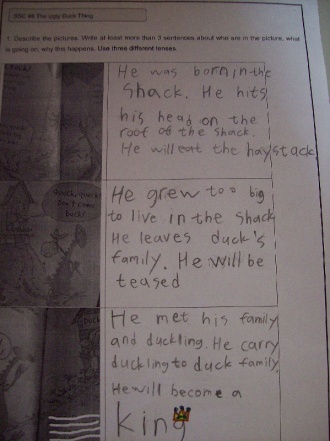 SSC #6 The Ugly Duck Thing
1. Describe the pictures. Write at least more than 3 sentences about who are in the picture, what
is going on, why this happens. Use three different lenses.
He was born in the
shack. He hits
his head on the
roof of the shack.
He will eat the haystack
Quack, quack!
Don't come
back!
He grew too big
to live in the shack
He leaves duck's
family. He will be
teased
He met his family
and duckling. He carry
duckling to duck family.
He will become a
king